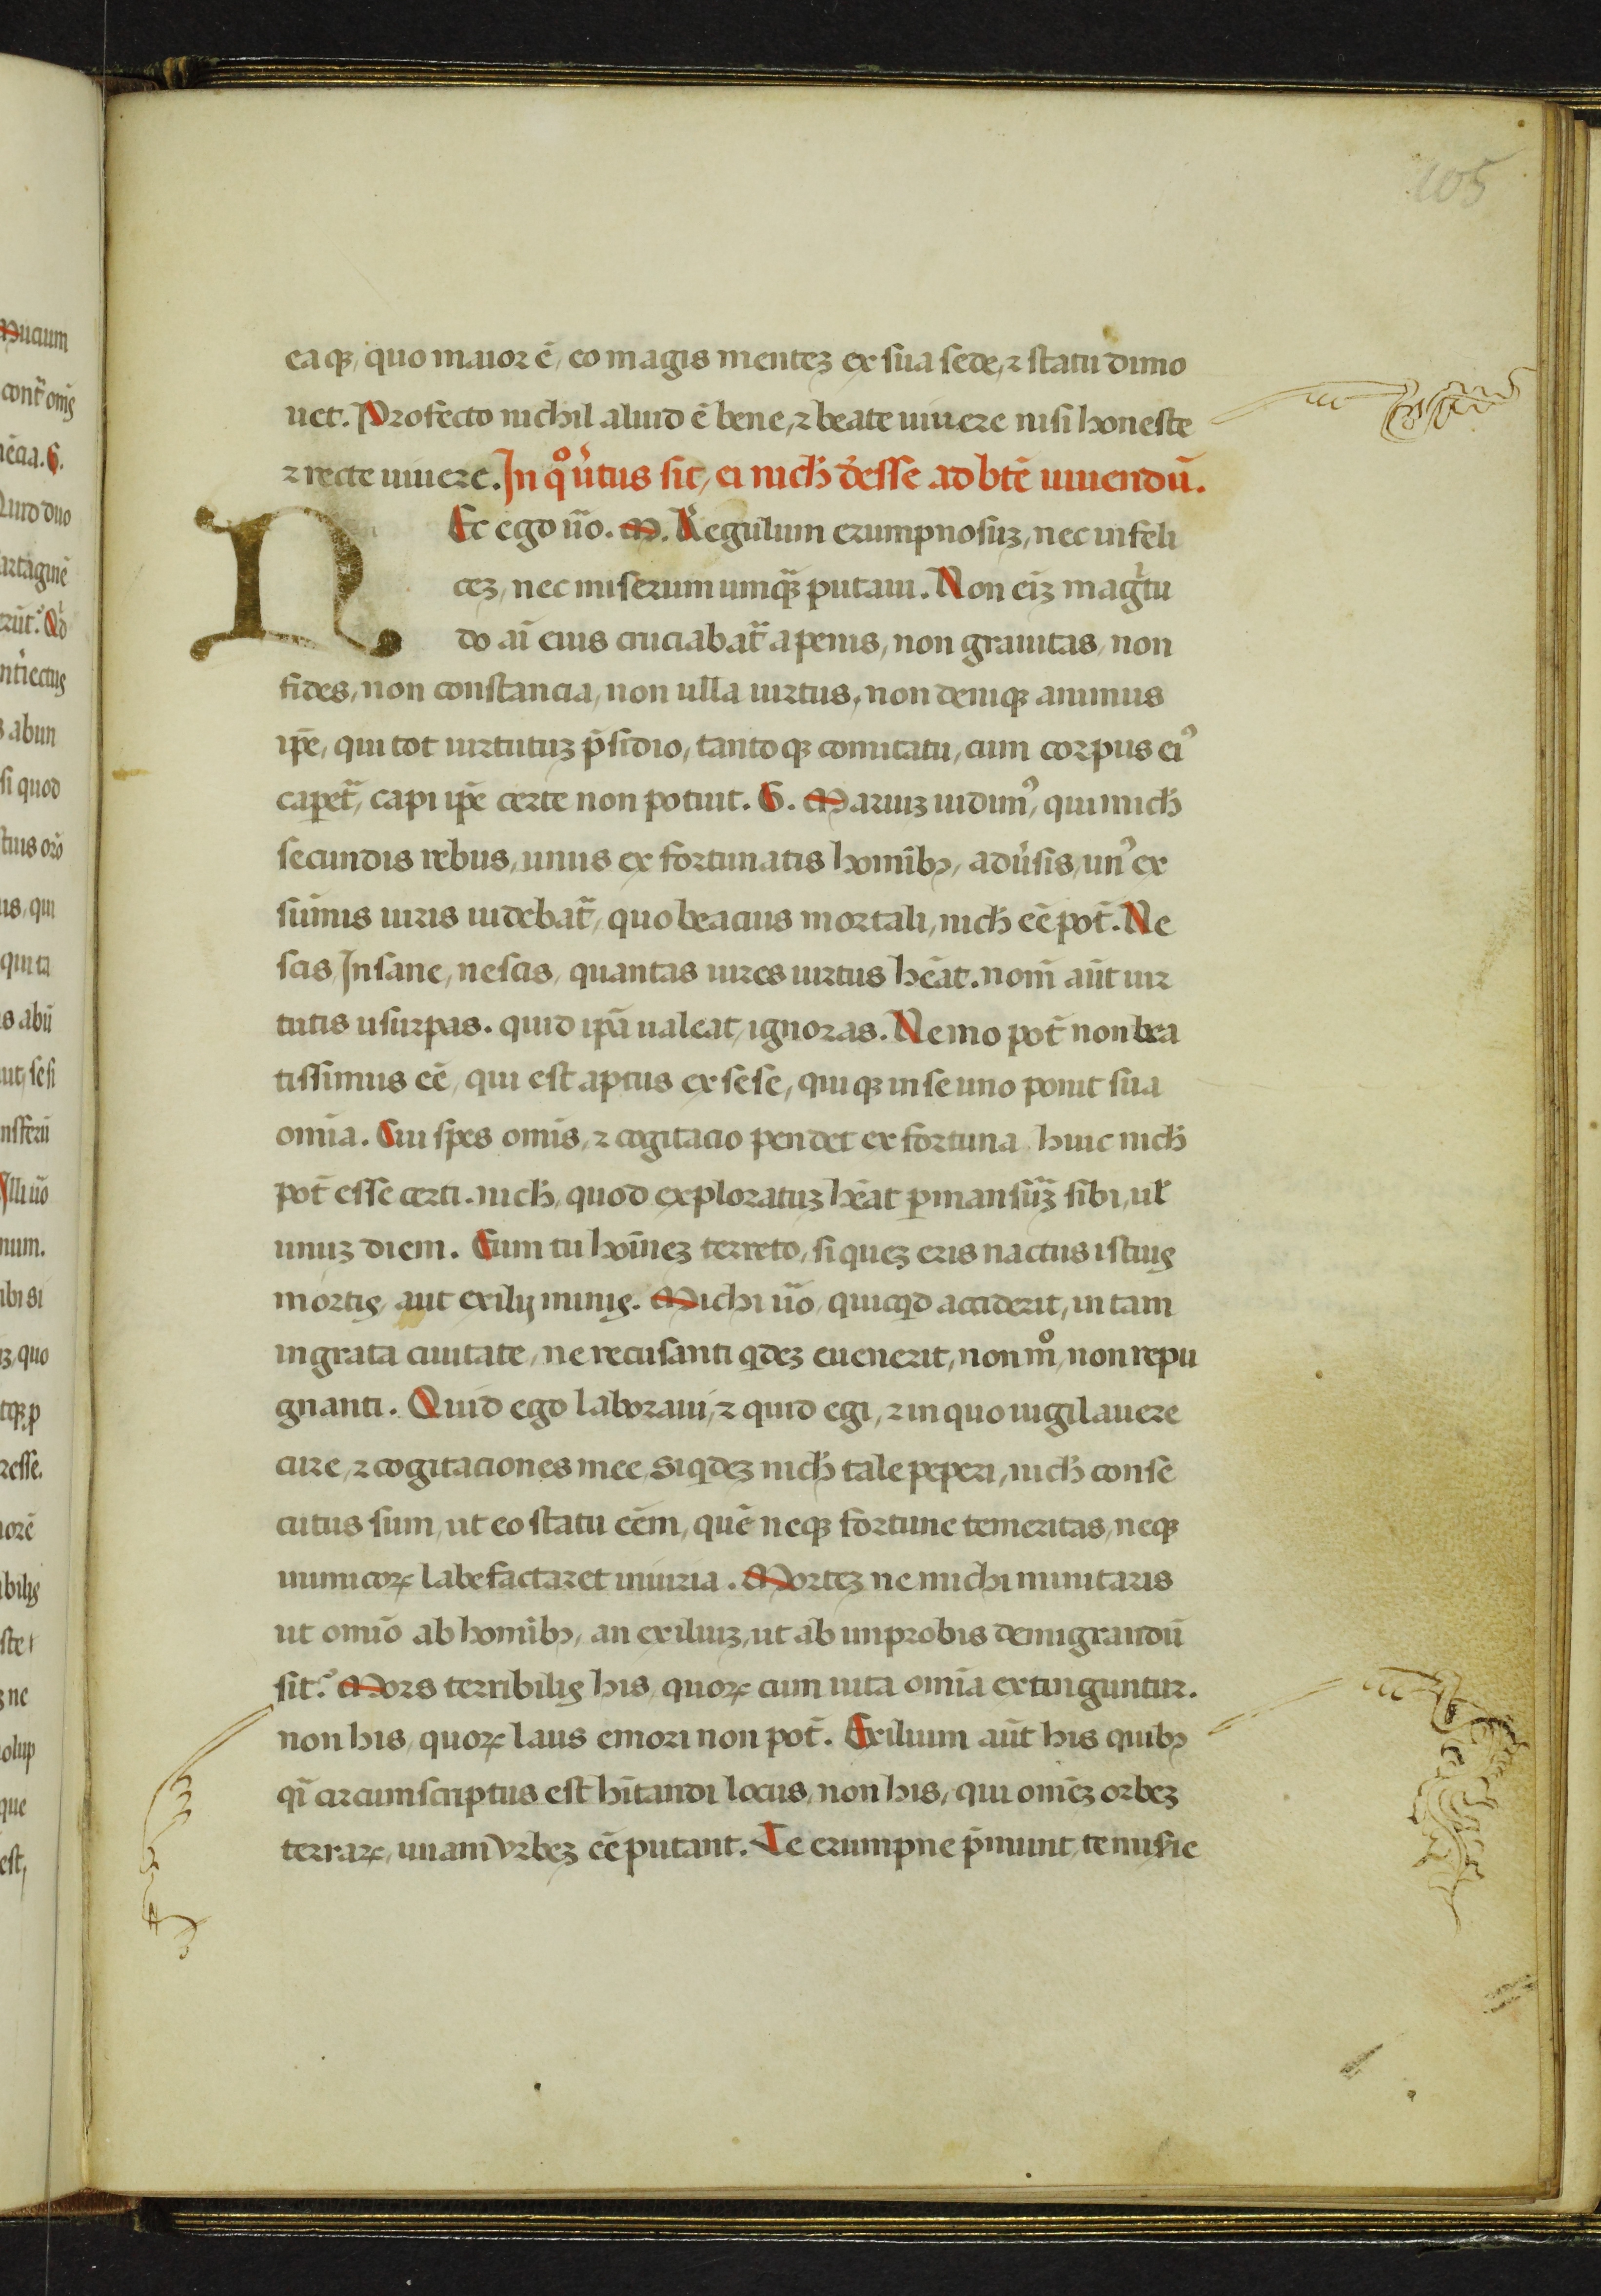 105
eaqꝫ, quo maior ē, eo magis menteꝫ ex sua sede, ⁊ statu dimo
uet. Profecto nichil aliud ē bene, ⁊ beate uiuere nisi honeste
⁊ recte uiuere. In qͦ uͥtus sit, ei nicħ deesse ad btē uiuendū.
NEc ego ūo. M. Regulum erumpnosuꝫ, nec infeli
ceꝫ, nec miserum umqꝫ̄ putaui. Non eīꝫ magͥtu
do aī eius cruciabat᷑ a penis, non grauitas, non
fides, non constancia, non ulla uirtus, non deniqꝫ animus
ip̄e, qui tot uirtutuꝫ p̄sidio, tantoqꝫ comitatu, cum corpus eiꝰ
capet᷑, capi ip̄e certe non potuit. G. Mariuꝫ uidimꝰ, qui michi
secundis rebus, unus ex fortunatis homībꝫ, aduͥsis, unꝰ ex
sūmis uiris uidebat᷑, quo beacius mortali, nicħ eē pot̄. Ne
scis Insane, nescis, quantas uires uirtus hēat. nom̄ aūt uir
tutis usurpas. quid ip̄a ualeat, ignoras. Nemo pot̄ non bea
tissimus eē, qui est aptus ex sese, quiqꝫ in se uno ponit sua
omīa. Cui spes omīs, ⁊ cogitacio pendet ex fortuna, huic nicħ
pot̄ esse certi. nicħ, quod exploratuꝫ hēat ꝑmansuꝝ sibi, uł
unuꝫ diem. Eum tu hoīneꝫ terreto, si queꝫ eris nactus istius
mortis, aut exilij minis. Michi ūo, quicqͥd acciderit, in tam
ingrata ciuitate, ne recusanti qͥdeꝫ euenerit, non mͦ, non repu
gnanti. Quid ego laboraui, ⁊ quid egi, ⁊ in quo uigilauere
cure, ⁊ cogitaciones mee, siqͥdeꝫ nicħ tale peperi, nicħ conse
cutus sum, ut eo statu eēm, quē neqꝫ fortune temeritas, neqꝫ
inimicoꝝ labefactaret iniuria. Morteꝫ ne michi minitaris
ut omīo ab homībꝫ, an exiliuꝫ, ut ab improbis demigrandū
sit? Mors terribilis his, quoꝝ cum uita omīa extinguntur.
non his, quoꝝ laus emori non pot̄. Exilium aūt his quibꝫ
qͣi circumscriptus est hītandi locus, non his, qui omēꝫ orbeꝫ
terraꝝ, unam vrbeꝫ eē putant. Te erumpne p̄munt, te miſie